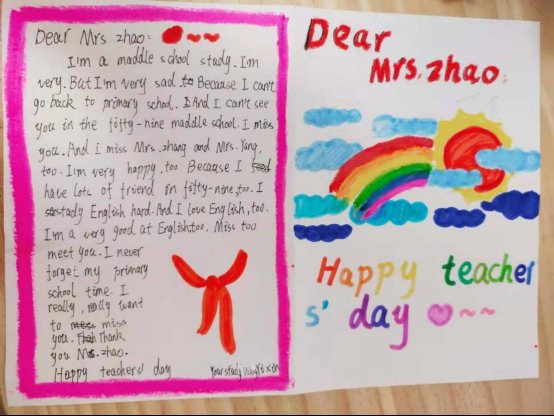 Dear Mrs zhao:
I'm a maddle school study. I'm
very. But I'm very sad. to Because I can't
go back to primary school. And I can't see
you in the fifty-nine maddle school. I miss
you. And i miss Mrs. zhang and Mrs. Yang,
too. I'm very happy. too Because I
have lots of friend in fifty-nine, too. I
study English hard. And I love English, too.
I'm a very good at English too. Miss too
meet you. I never
forget my primary
school time. I
really, really want
to miss
you. Thank
you Mrs. zhao.
Happy teachers' day
Your study
Dear
Mrs. zhao:
Happy teacher
s' day ~~